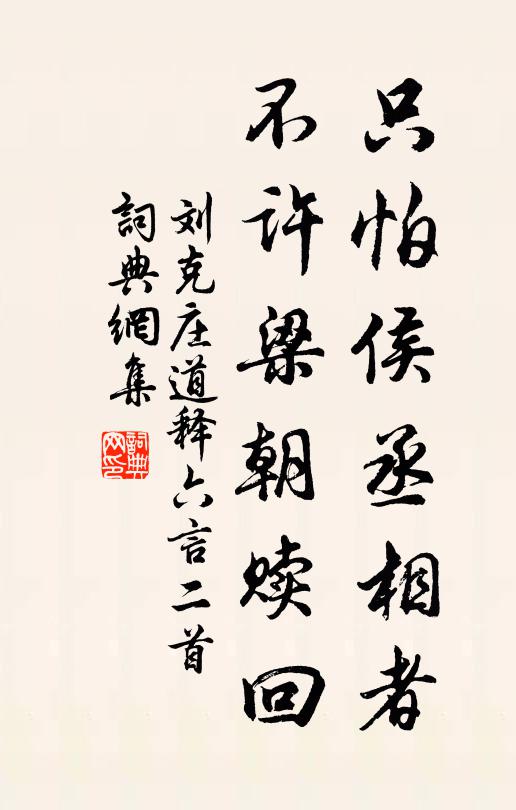 只怕侯丞相者
不许梁朝赎回
刘克庄道释六言二首
詞典網集
詞典网印